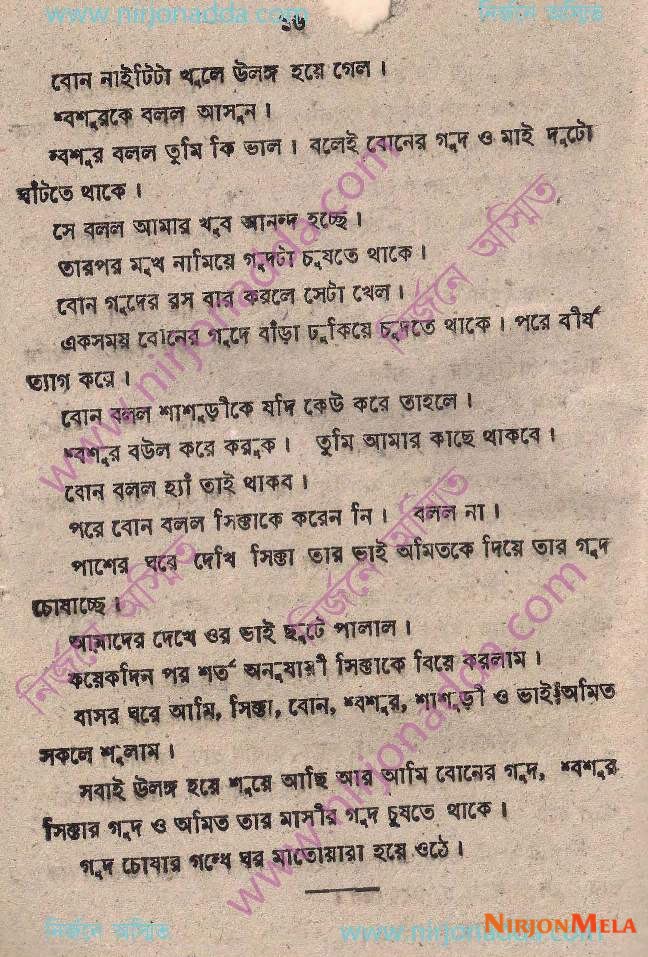 www.nirjonadda.com
নির্জনে অস্মিত
১৬
বোন নাইটিটা খুলে উলঙ্গ হয়ে গেল।
শ্বশুরকে বলল আসুন।
শ্বশুর বলল তুমি কি ভাল। বলেই বোনের গুদ ও মাই দুটো
ঘাঁটতে থাকে।
সে বলল আমার খুব আনন্দ হচ্ছে।
তারপর মুখ নামিয়ে গুদটা চুষতে থাকে।
বোন গুদের রস বার করলে সেটা খেল।
একসময় বোনের গুদে বাঁড়া ঢুকিয়ে চুদতে থাকে। পরে বীর্য
ত্যাগ করে।
বোন বলল শাশুড়ীকে যদি কেউ করে তাহলে।
শ্বশুর বউল করে করুক। তুমি আমার কাছে থাকবে।
বোন বলল হ্যাঁ তাই থাকব।
পরে বোন বলল সিক্তাকে করেন নি। বলল না।
পাশের ঘরে দেখি সিক্তা তার ভাই অমিতকে দিয়ে তার গুদ
চোষাচ্ছে।
আমাদের দেখে ওর ভাই ছুটে পালাল।
কয়েকদিন পর শর্ত অনুযায়ী সিক্তাকে বিয়ে করলাম।
বাসর ঘরে আমি, সিক্তা, বোন, শ্বশুর, শাশুড়ী ও ভাই অমিত
সকলে শুলাম।
সবাই উলঙ্গ হয়ে শুয়ে আছি আর আমি বোনের গুদ, শ্বশুর
সিক্তার গুদ ও অমিত তার মাসীর গুদ চুষতে থাকে।
গুদ চোষার গন্ধে ঘর মাতোয়ারা হয়ে ওঠে।
www.nirjonadda.com
নির্জনে অস্মিত
নির্জনে অস্মিত
নির্জনে অস্মিত
www.nirjonadda.com
নির্জনে অস্মিত
www.nirjonadda.com
NIRJONMELA